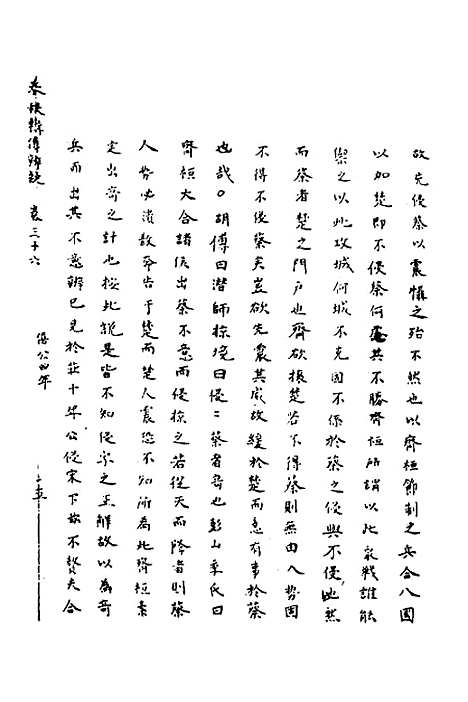 故先侵蔡以震懾之殆不然也以齊桓節制之兵合八國
以加楚即不侵蔡何患其不勝齊桓所謂以此眾戰誰能
禦之以此攻城何城不克固不係於蔡之侵與不侵也然
而蔡者楚之門戶也齊欲振楚若不得蔡則無由入勢固
不得不侵蔡矣豈欲先震其威故緩於楚而急有事於蔡
也哉○胡傅曰潛師掠境曰侵二蔡者奇也彭山季氏曰
齊桓大合諸侯出蔡不意而侵掠之若從天而降者則蔡
人勢必潰散奔告于楚而楚人震恐不知所為此齊桓素
定出奇之計也按此說是皆不知侵字之正解故以為奇
兵而出其不意辨已見於莊十年公侵宋下茲不贅夫合
春秋輯傳辨疑 卷三十六 僖公四年 十五